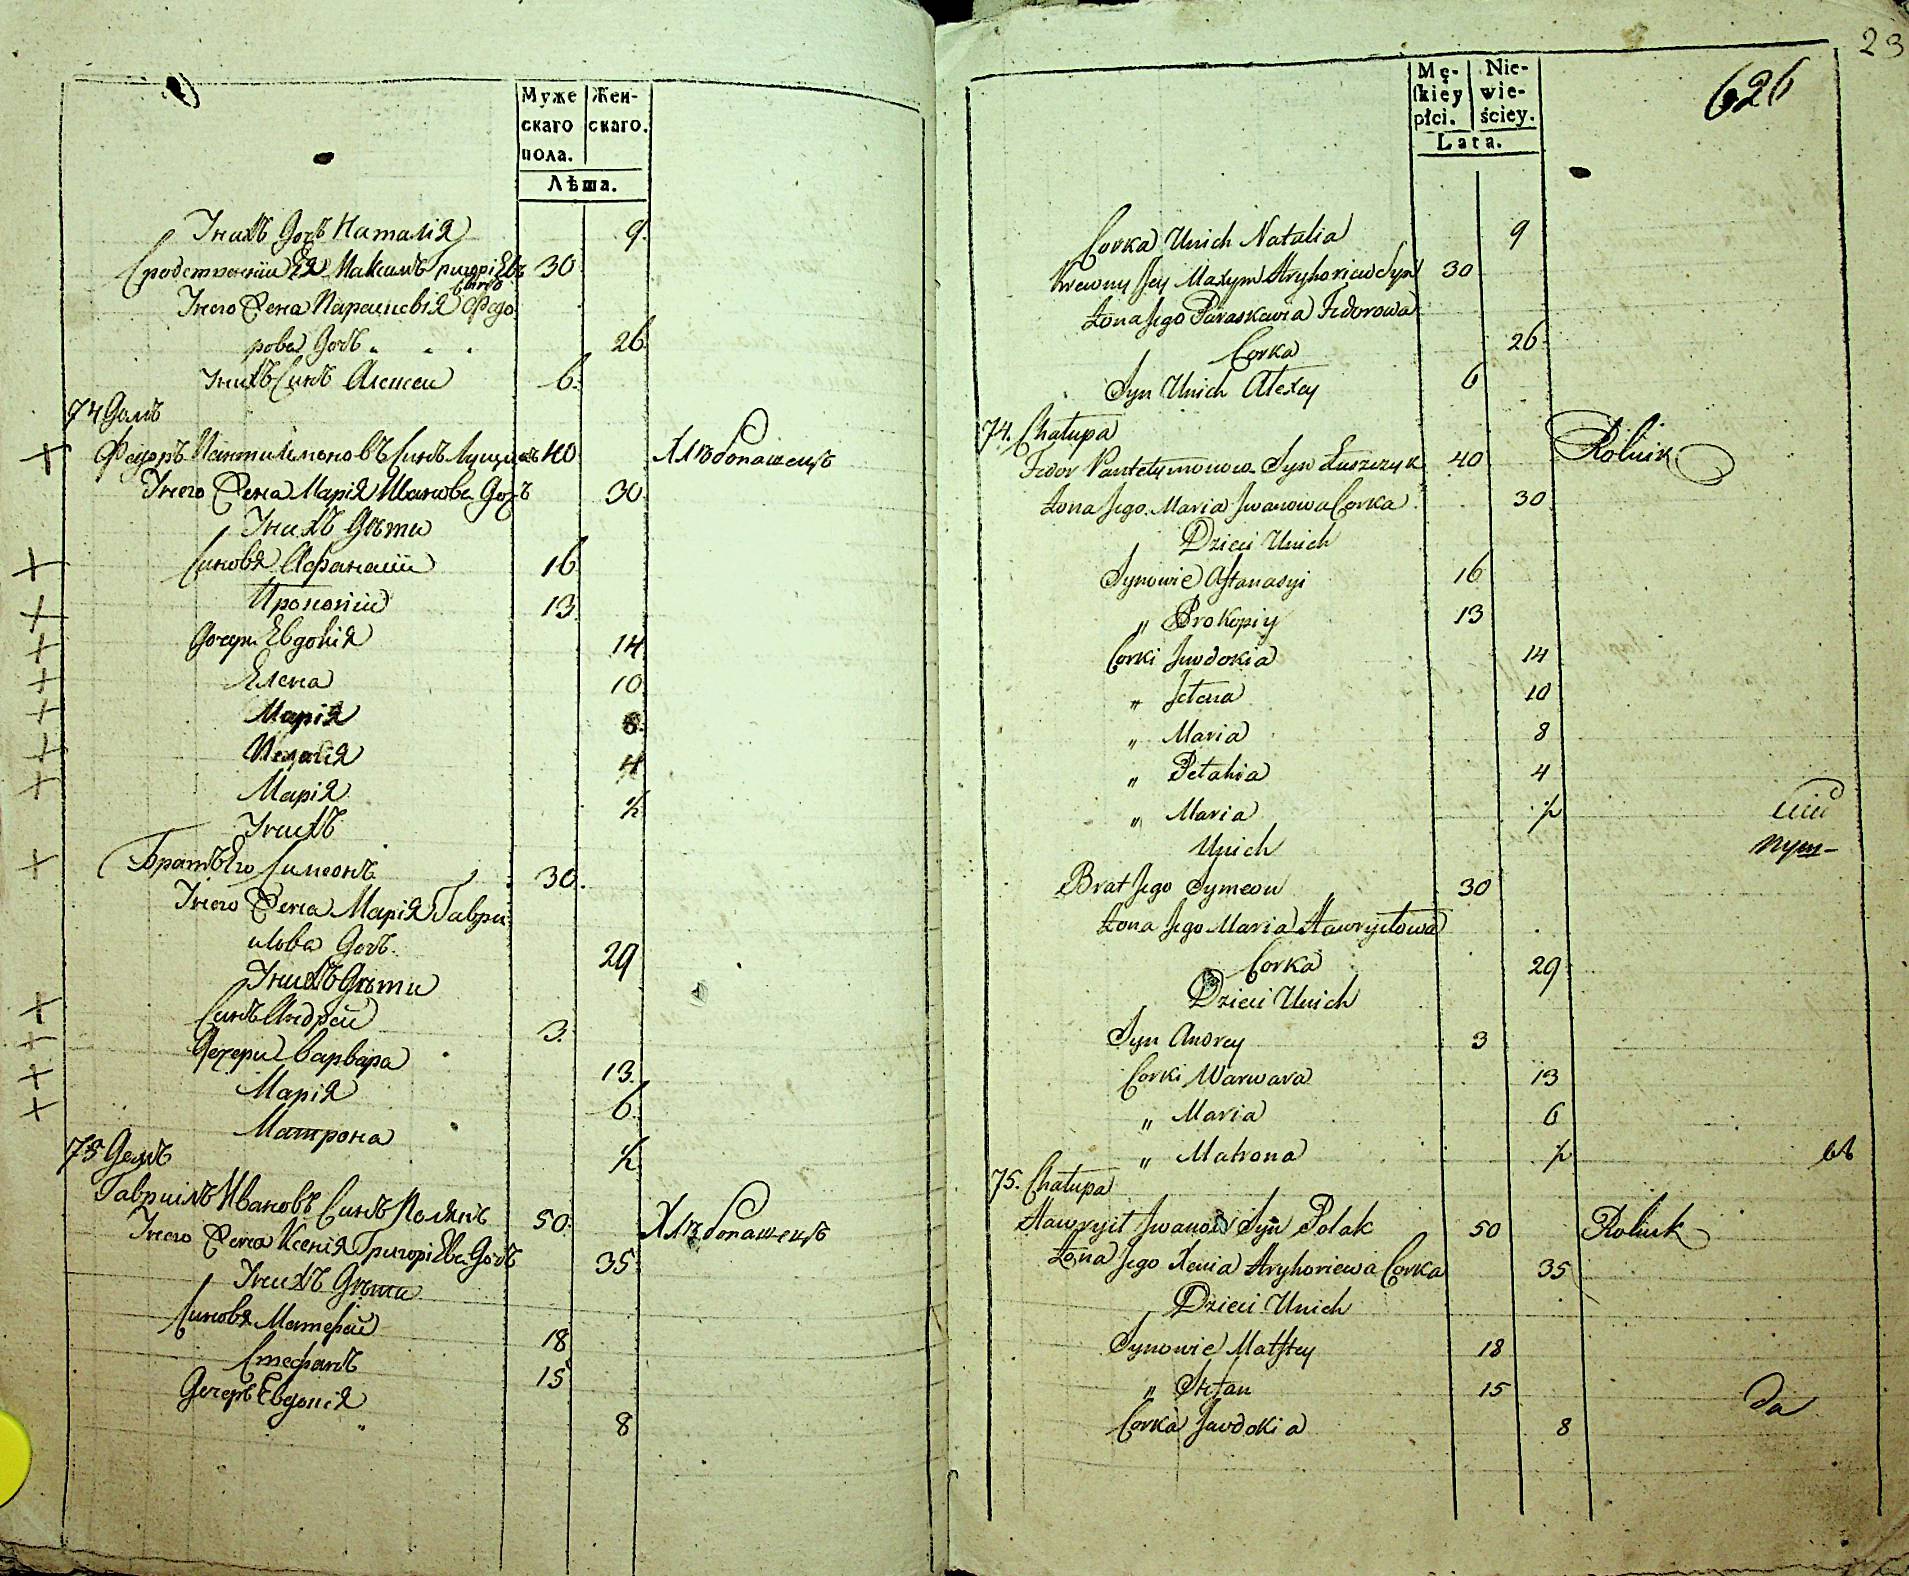 Муже
скаго
пола.
Жен-
скаго.
Лѣта.
Унихъ Дочъ Наталія 9.
Сродственній Ея Максимъ Григоріевъ 30
Сынъ
Унего Жена Параскевія Федо
рова Дочъ . . . 26
Унихъ Синъ Алексей 6.
74 Домъ
Федоръ Пантилимоновъ Синъ Лущикъ 40 Хлѣбопашецъ
Унего Жена Марія Иванова Дочъ 30
Унихъ Дѣти
Синовя Афанасій 16
Прокопій 13
Дочери Евдокія 14
Елена 10
Марія 8.
Пелагія 4
Марія ½
Унихъ
Братъ Его Симеонъ 30.
Унего Жена Марія Гаври
илова Дочъ. 29
Унихъ Дѣти
Синъ Андрей 3.
Дочери Варвара 13.
Марія 6.
Матрона ½
75 Домъ
Гавриилъ Ивановъ Синъ Полякъ 50. Хлѣбопашецъ
Унего Жена Ксенія Григоріева Дочъ 35
Унихъ Дѣти
Синовя Матфей 18
Стефанъ 15
Дочеръ Евдокія 8
23
626
Mę-
skiey
płci.
Nie-
wie-
ściey.
Lata.
Corka Unich Natalia 9
Krewny Jey Maxym Hryhoriew Syn 30
Żona Jego Paraskewia Fedorowa
Corka 26
Syn Unich Alexey 6
74. Chałupa
Fedor Pantelymonow Syn Łuszczyk 40 Rolnik
Żona Jego Maria Iwanowa Corka 30
Dzieci Unich
Synowie Afanasyi 16
„ Prokopiy 13
Corki Jewdokia 14
„ Jelena 10
„ Maria 8
„ Pelahia 4
„ Maria ½
Unich
Brat Jego Symeon 30
Żona Jego Maria Hawryiłowa
Corka 29
Dzieci Unich
Syn Andrey 3
Corki Warwara 13
„ Maria 6
„ Matrona ½
75. Chałupa
Hawryił Iwanow Syn Polak 50 Rolnik
Żona Jego Xenia Hryhoriewa Corka 35
Dzieci Unich
Synowie Matfey 18
„ Stefan 15
Corka Jewdokia 8